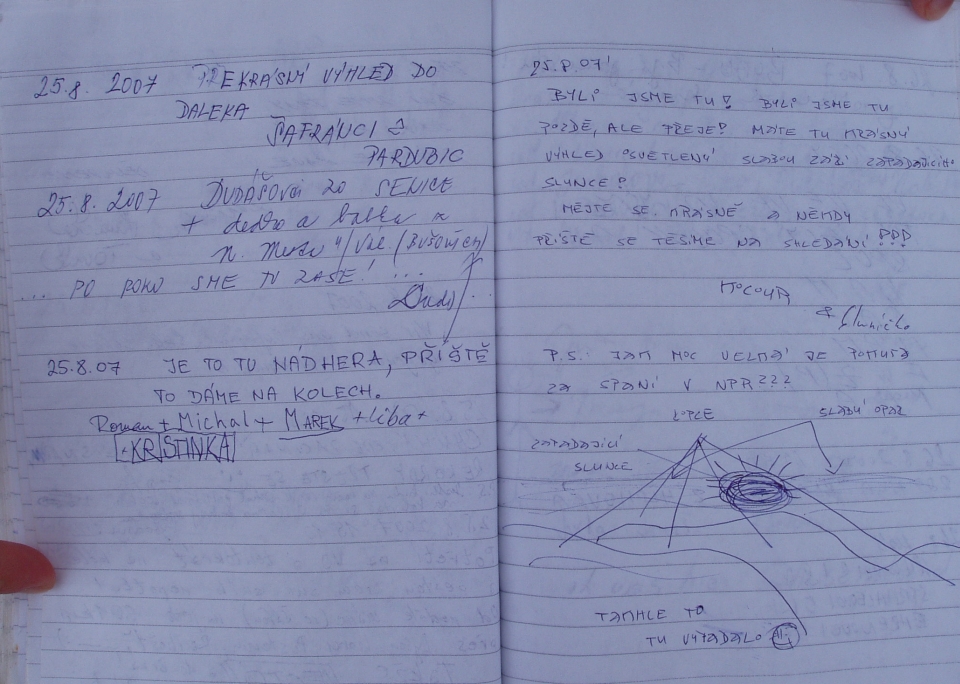 25.8. 2007 PŘEKRÁSNÝ VÝHLED DO
DALEKA
ŠAFRÁNCI Z
PARDUBIC
25.8. 2007 DUDÁŠOVCI ZO SENICE
+ dedko a babka z
n. Mesta n/Váh. (BUŠOVÝCH)
... PO ROKU SME TU ZASE! ...
25.8.07 JE TO TU NÁDHERA, PŘÍŠTĚ
TO DÁME NA KOLECH.
Roman + Michal + MAREK + Liba +
+ KRISTINKA
25.8.07
BYLI JSME TU! BYLI JSME TU
POZDĚ, ALE PŘEJE! MÁTE TU KRÁSNÝ
VÝHLED OSVĚTLENÝ SLABOU ZÁŘÍ ZAPADAJÍCÍHO
SLUNCE!
MĚJTE SE KRÁSNĚ A NĚKDY
PŘÍŠTĚ SE TĚŠÍME NA SHLEDÁNÍ !!!
KOCOUR
& Sluníčko
P.S. JAK MOC VELKÁ JE POKUTA
ZA SPANÍ V NPR???
SLABÝ OPAR
ZAPADAJÍCÍ
SLUNCE
TAKHLE TO
TU VYPADALO